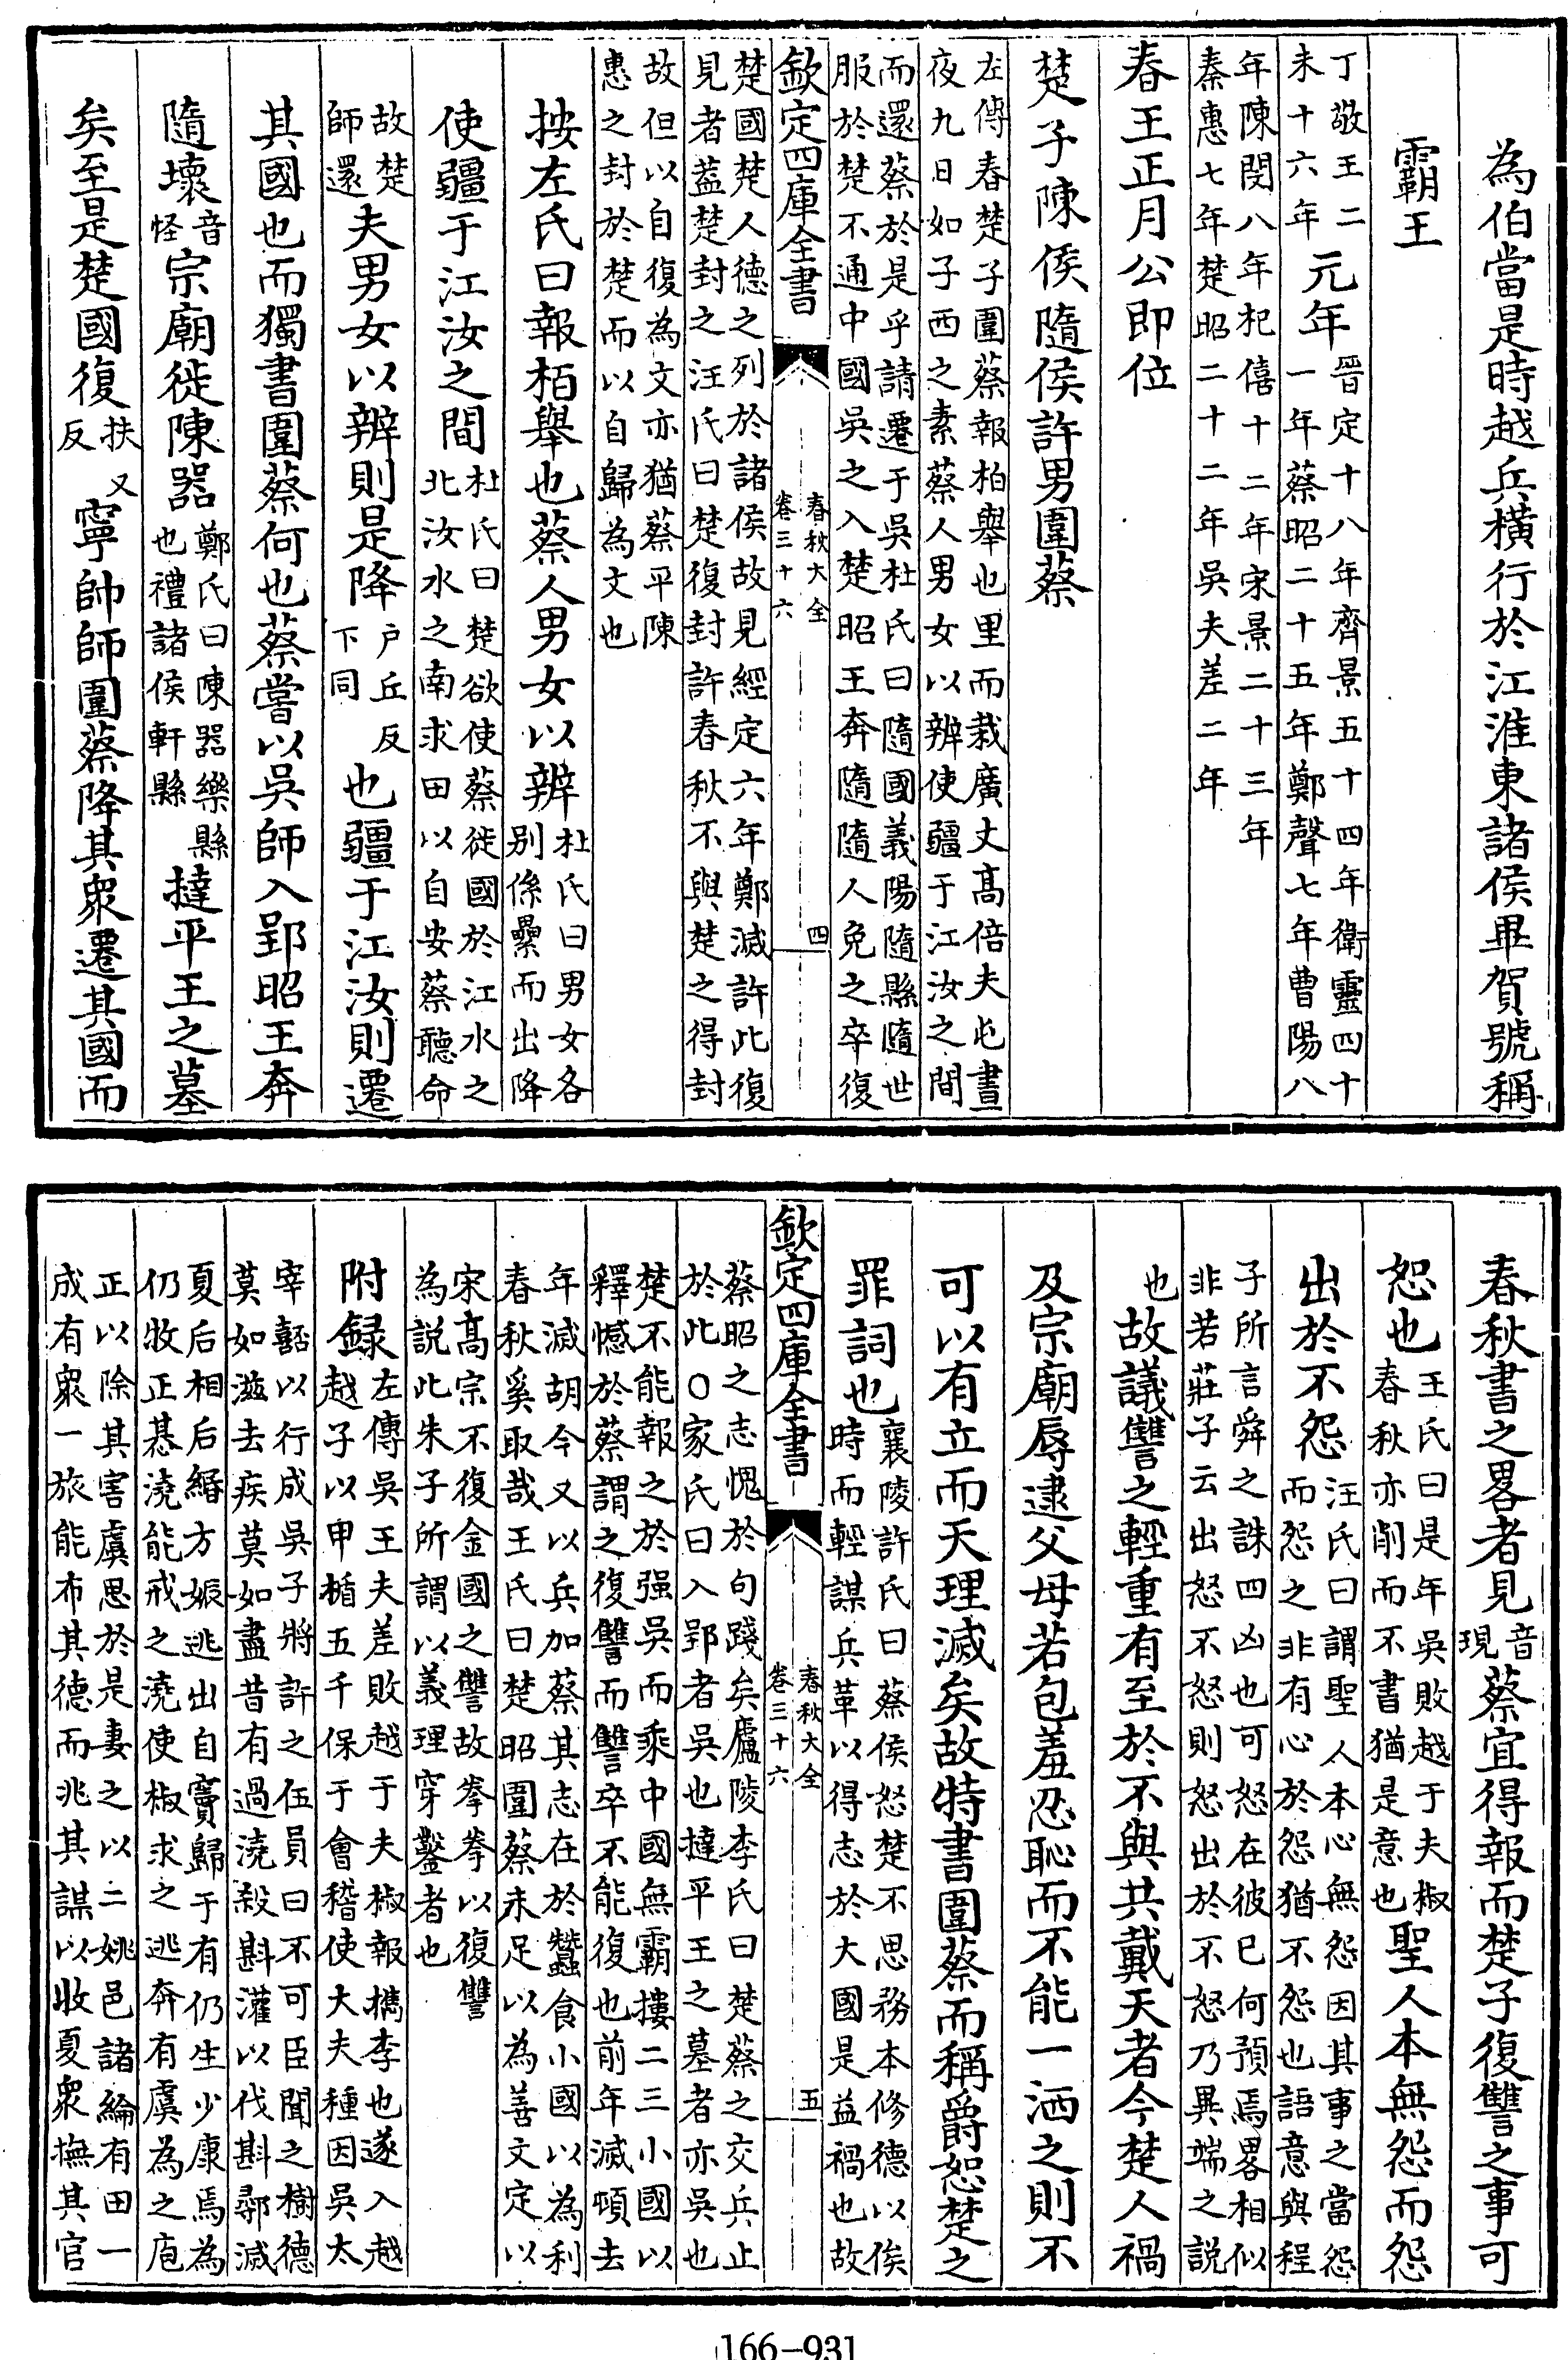 為伯當是時越兵橫行於江淮東諸侯畢賀號稱
霸王
丁敬王二
未十六年
元年
晉定十八年齊景五十四年衛靈四十
一年蔡昭二十五年鄭聲七年曹陽八
年陳閔八年杞僖十二年宋景二十三年
秦惠七年楚昭二十二年吳夫差二年
春王正月公即位
楚子陳侯隨侯許男圍蔡
左傳春楚子圍蔡報柏舉也里而栽廣丈髙倍夫屯晝
夜九日如子西之素蔡人男女以辨使疆于江汝之間
而還蔡於是乎請遷于吳杜氏曰隨國義陽隨縣隨世
服於楚不通中國吳之入楚昭王奔隨隨人免之卒復
欽定四庫全書
春秋大全
卷三十六
四
楚國楚人德之列於諸侯故見經定六年鄭滅許此復
見者蓋楚封之汪氏曰楚復封許春秋不與楚之得封
故但以自復為文亦猶蔡平陳
惠之封於楚而以自歸為文也
按左氏曰報栢舉也蔡人男女以辨
杜氏曰男女各
别係纍而出降
使疆于江汝之間
杜氏曰楚欲使蔡徙國於江水之
北汝水之南求田以自安蔡聽命
故楚
師還
夫男女以辨則是降
戶丘反
下同
也疆于江汝則遷
其國也而獨書圍蔡何也蔡嘗以吳師入郢昭王奔
隨壞
音
怪
宗廟徙陳器
鄭氏曰陳器樂縣
也禮諸侯軒縣
撻平王之墓
矣至是楚國復
扶又
反
寧帥師圍蔡降其衆遷其國而
春秋書之畧者見
音
現
蔡宜得報而楚子復讐之事可
恕也
王氏曰是年吳敗越于夫椒
春秋亦削而不書猶是意也
聖人本無怨而怨
出於不怨
汪氏曰謂聖人本心無怨因其事之當怨
而怨之非有心於怨猶不怨也語意與程
子所言舜之誅四凶也可怒在彼已何預焉畧相似
非若莊子云出怒不怒則怒出於不怒乃異端之説
也
故議讐之輕重有至於不與共戴天者今楚人禍
及宗廟辱逮父母若包羞忍恥而不能一洒之則不
可以有立而天理滅矣故特書圍蔡而稱爵恕楚之
罪詞也
襄陵許氏曰蔡侯怒楚不思務本修德以俟
時而輕謀兵革以得志於大國是益禍也故
欽定四庫全書
春秋大全
卷三十六
五
蔡昭之志愧於句踐矣廬陵李氏曰楚蔡之交兵止
於此○家氏曰入郢者吳也撻平王之墓者亦吳也
楚不能報之於强吳而乘中國無霸摟二三小國以
釋憾於蔡謂之復讐而讐卒不能復也前年滅頓去
年滅胡今又以兵加蔡其志在於蠶食小國以為利
春秋奚取哉王氏曰楚昭圍蔡未足以為善文定以
宋髙宗不復金國之讐故拳拳以復讐
為説此朱子所謂以義理穿鑿者也
附録
左傳吳王夫差敗越于夫椒報檇李也遂入越
越子以甲楯五千保于會稽使大夫種因吳太
宰嚭以行成吳子將許之伍員曰不可臣聞之樹德
莫如滋去疾莫如盡昔有過澆殺斟灌以伐斟鄩滅
夏后相后緡方娠逃出自竇歸于有仍生少康焉為
仍牧正惎澆能戒之澆使椒求之逃奔有虞為之庖
正以除其害虞思於是妻之以二姚邑諸綸有田一
成有衆一旅能布其德而兆其謀以收夏衆撫其官
166-931